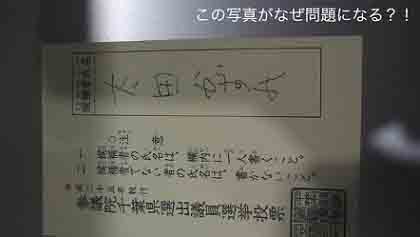 この写真がなぜ問題になる？！
候補者氏名
太田かずみ
○注 意
一 候補者の氏名は、欄内に一人書くこと。
二 候補者でない者の氏名は、書かないこと。
平成二十五年執行
参議院千葉県選出議員選挙投票